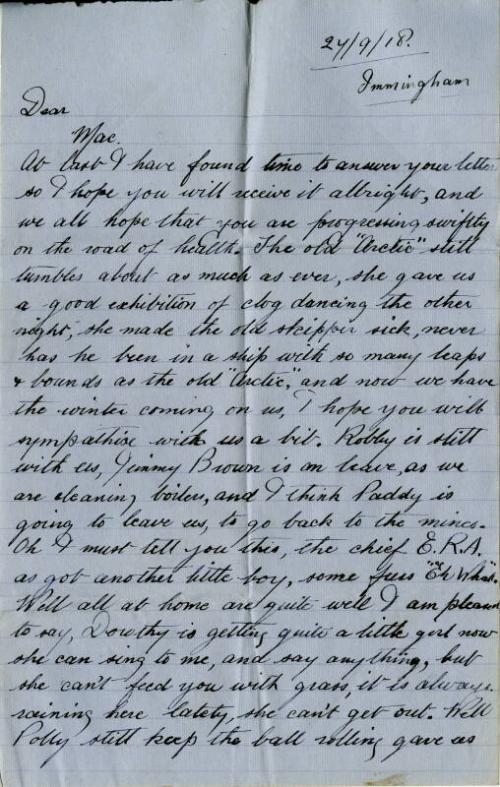 27/9/18.
Immingham
Dear
Mac.
At last I have found time to answer your letter
so I hope you will receive it allright, and
we all hope that you are progressing swiftly
on the road of health. The old "Arctic" still
tumbles about as much as ever, she gave us
a good exhibition of clog dancing the other
night, she made the old skipper sick, never
has he been in a ship with so many leaps
& bounds as the old "Arctic," and now we have
the winter coming on us, I hope you will
sympathise with us a bit. Robby is still
with us, Jimmy Brown is on leave, as we
are cleaning boilers, and I think Paddy is
going to leave us, to go back to the mines.
Oh I must tell you this, the chief E.R.A.
as got another little boy, some fuss "Eh What".
Well all at home are quite well I am pleased
to say, Dowthy is getting quite a little girl now
she can sing to me, and say anything, but
she can't feed you with grass, it is always
raining here lately, she can't get out. Well
Polly still keep the ball rolling gave us